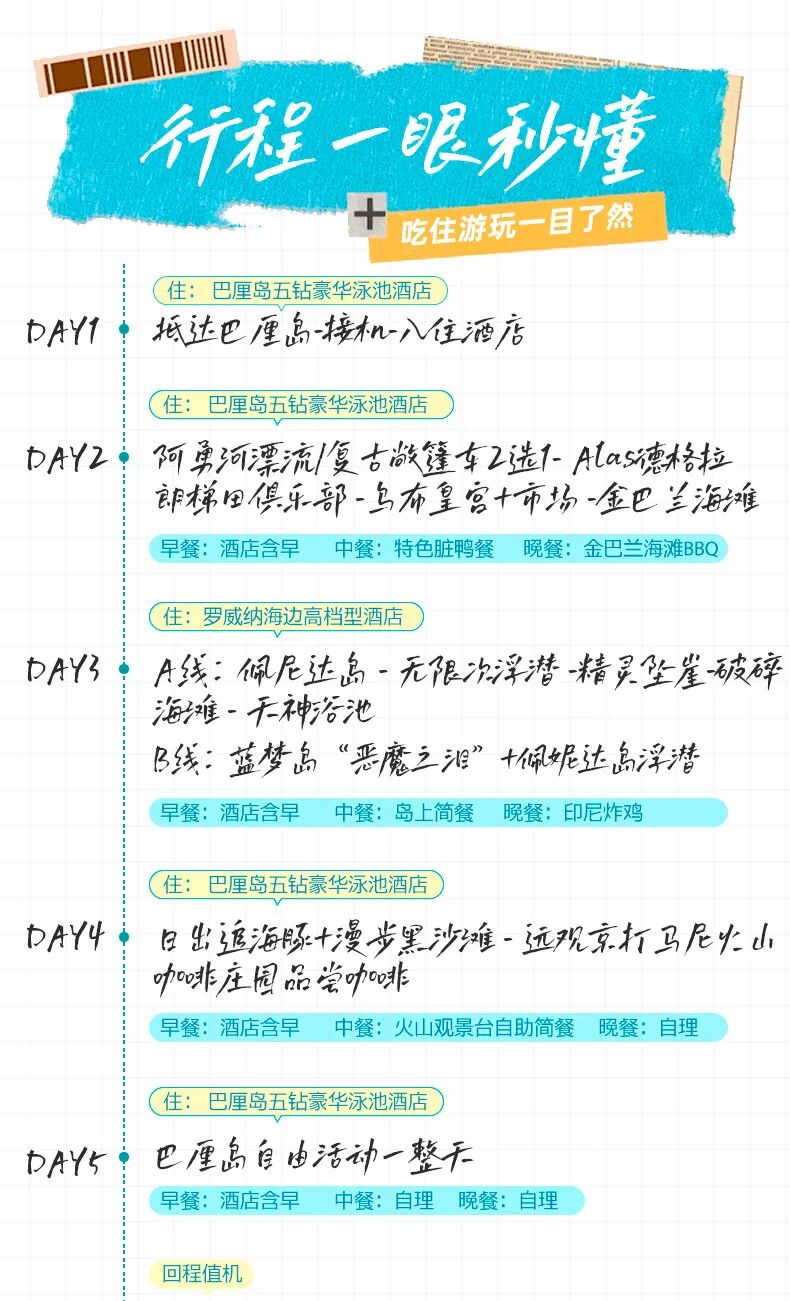 行程一眼秒懂
吃住游玩一目了然
住： 巴厘岛五钻豪华泳池酒店
DAY1
抵达巴厘岛-接机-入住酒店
住： 巴厘岛五钻豪华泳池酒店
DAY2
阿勇河漂流/复古敞篷车2选1- Alas德格拉
朗梯田俱乐部-乌布皇宫+市场-金巴兰海滩
早餐：酒店含早 中餐：特色脏鸭餐 晚餐：金巴兰海滩BBQ
住：罗威纳海边高档型酒店
DAY3
A线：佩尼达岛-无限次浮潜-精灵坠崖-破碎
海滩-天神浴池
B线：蓝梦岛“恶魔之泪”+佩妮达岛浮潜
早餐：酒店含早 中餐：岛上简餐 晚餐：印尼炸鸡
住： 巴厘岛五钻豪华泳池酒店
DAY4
日出追海豚+漫步黑沙滩-远观京打马尼火山
咖啡庄园品尝咖啡
早餐：酒店含早 中餐：火山观景台自助简餐 晚餐：自理
住： 巴厘岛五钻豪华泳池酒店
DAY5
巴厘岛自由活动一整天
早餐：酒店含早 中餐：自理 晚餐：自理
回程值机